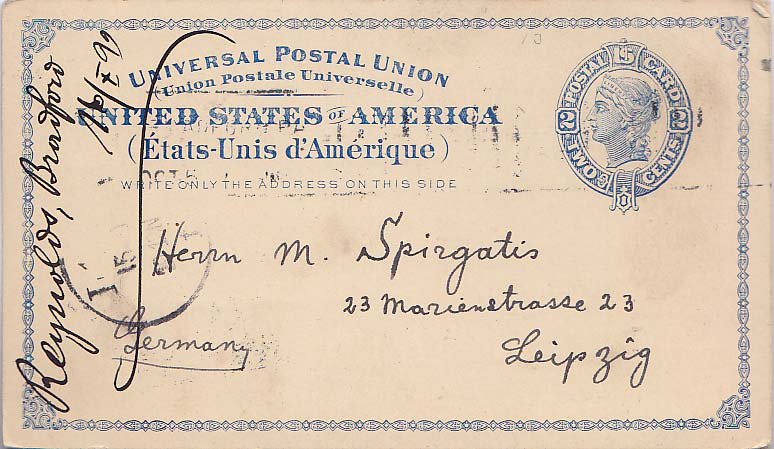 UNIVERSAL POSTAL UNION
(Union Postale Universelle)
UNITED STATES OF AMERICA
(États-Unis d'Amérique)
WRITE ONLY THE ADDRESS ON THIS SIDE
POSTAL U S CARD
2 2
TWO CENTS
Herrn M. Spirgatis
23 Marienstrasse 23
Leipzig
Germany
Reynolds, Bradford